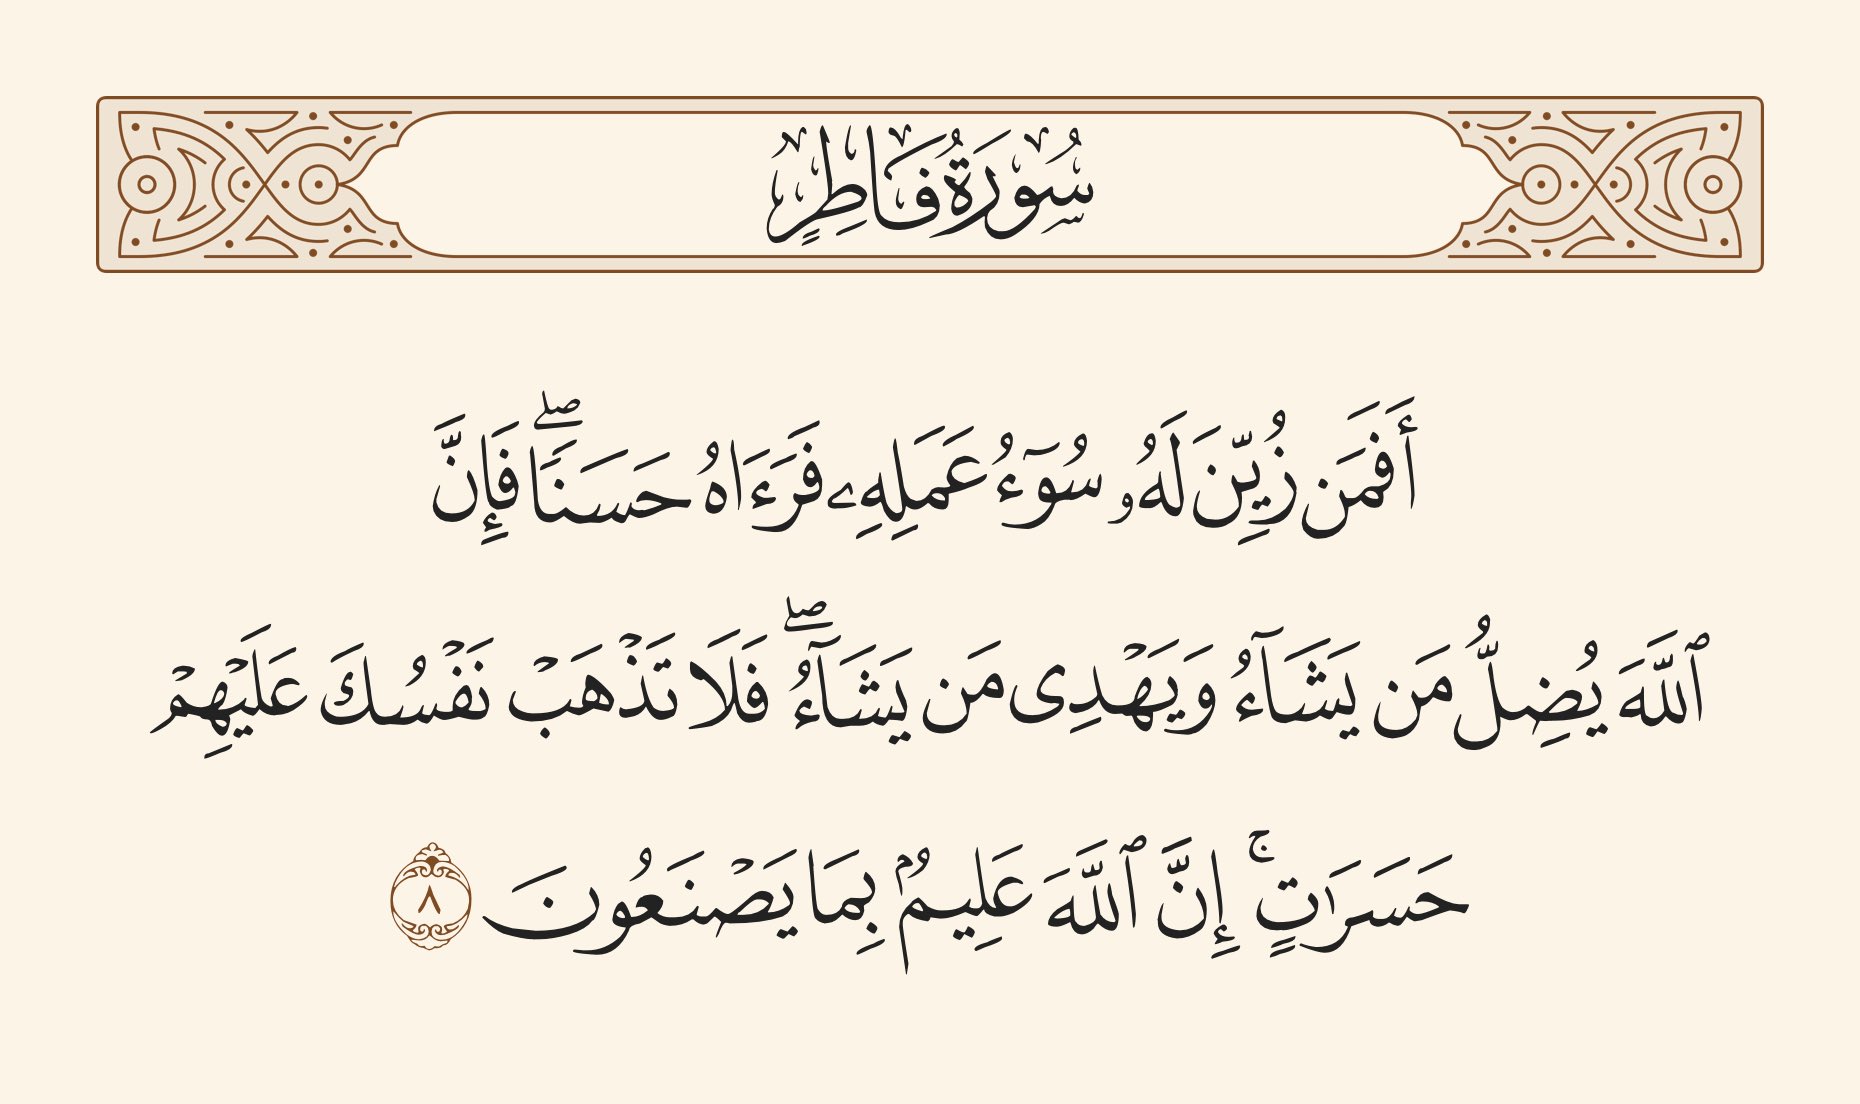 سُورَةُ فَاطِرٍ
أَفَمَن زُيِّنَ لَهُۥ سُوٓءُ عَمَلِهِۦ فَرَءَاهُ حَسَنَٗاۖ فَإِنَّ
ٱللَّهَ يُضِلُّ مَن يَشَآءُ وَيَهۡدِي مَن يَشَآءُۖ فَلَا تَذۡهَبۡ نَفۡسُكَ عَلَيۡهِمۡ
حَسَرَٰتٍۚ إِنَّ ٱللَّهَ عَلِيمُۢ بِمَا يَصۡنَعُونَ ٨